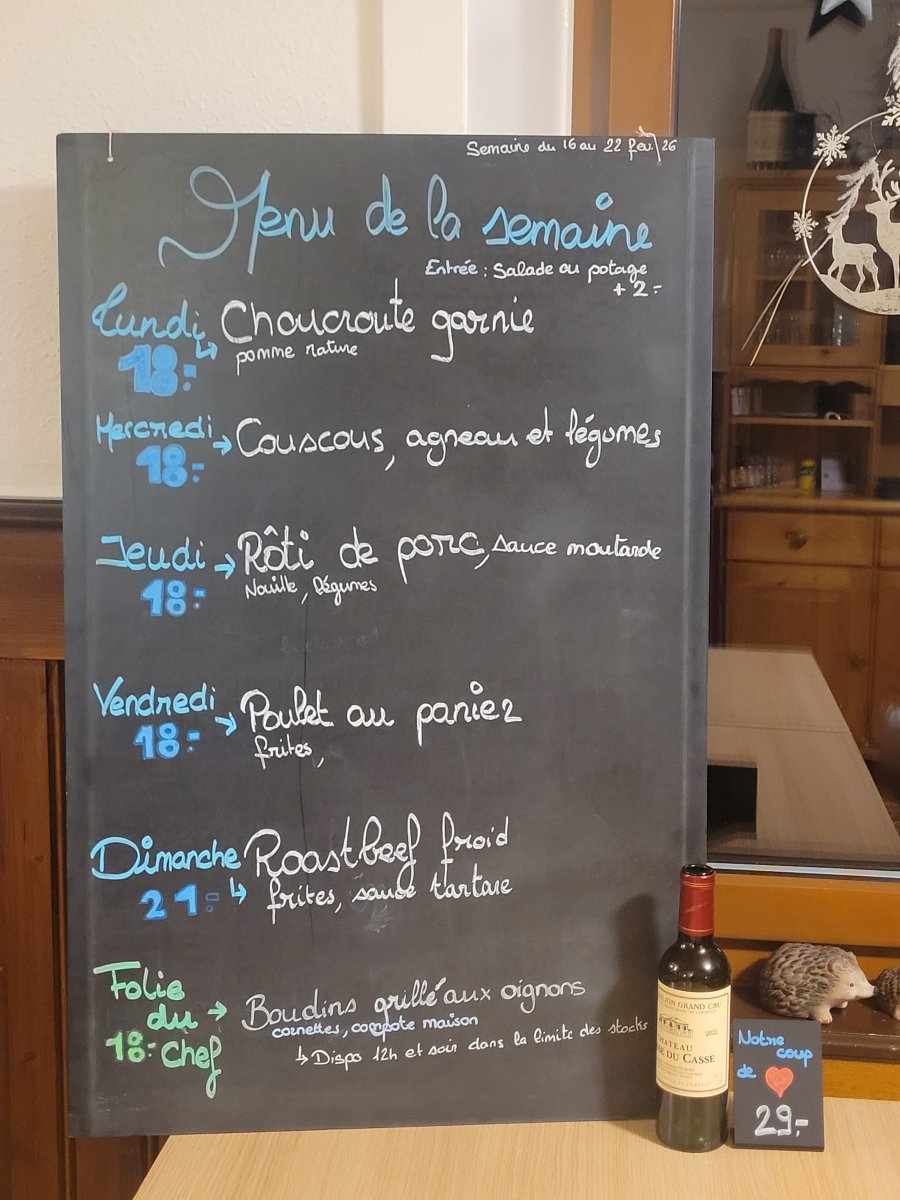 Semaine du 16 au 22 fev 26
Menu de la semaine
Entrée : Salade ou potage
+ 2.-
Lundi Choucroute garnie
18.- pomme nature
Mercredi → Couscous, agneau et légumes
18.-
Jeudi → Rôti de porc, sauce moutarde
18.- Nouille, légumes
Vendredi Poulet au panier
18.- frites,
Dimanche Roastbeef froid
21.- frites, sauce tartare
Folie du Chef → Boudins grillé aux oignons
18.- cornettes, compote maison
↳ Dispo 12h et soir dans la limite des stocks
GRAND CRU
2022
DU CASSE
Notre
coup
de ♥
29.-